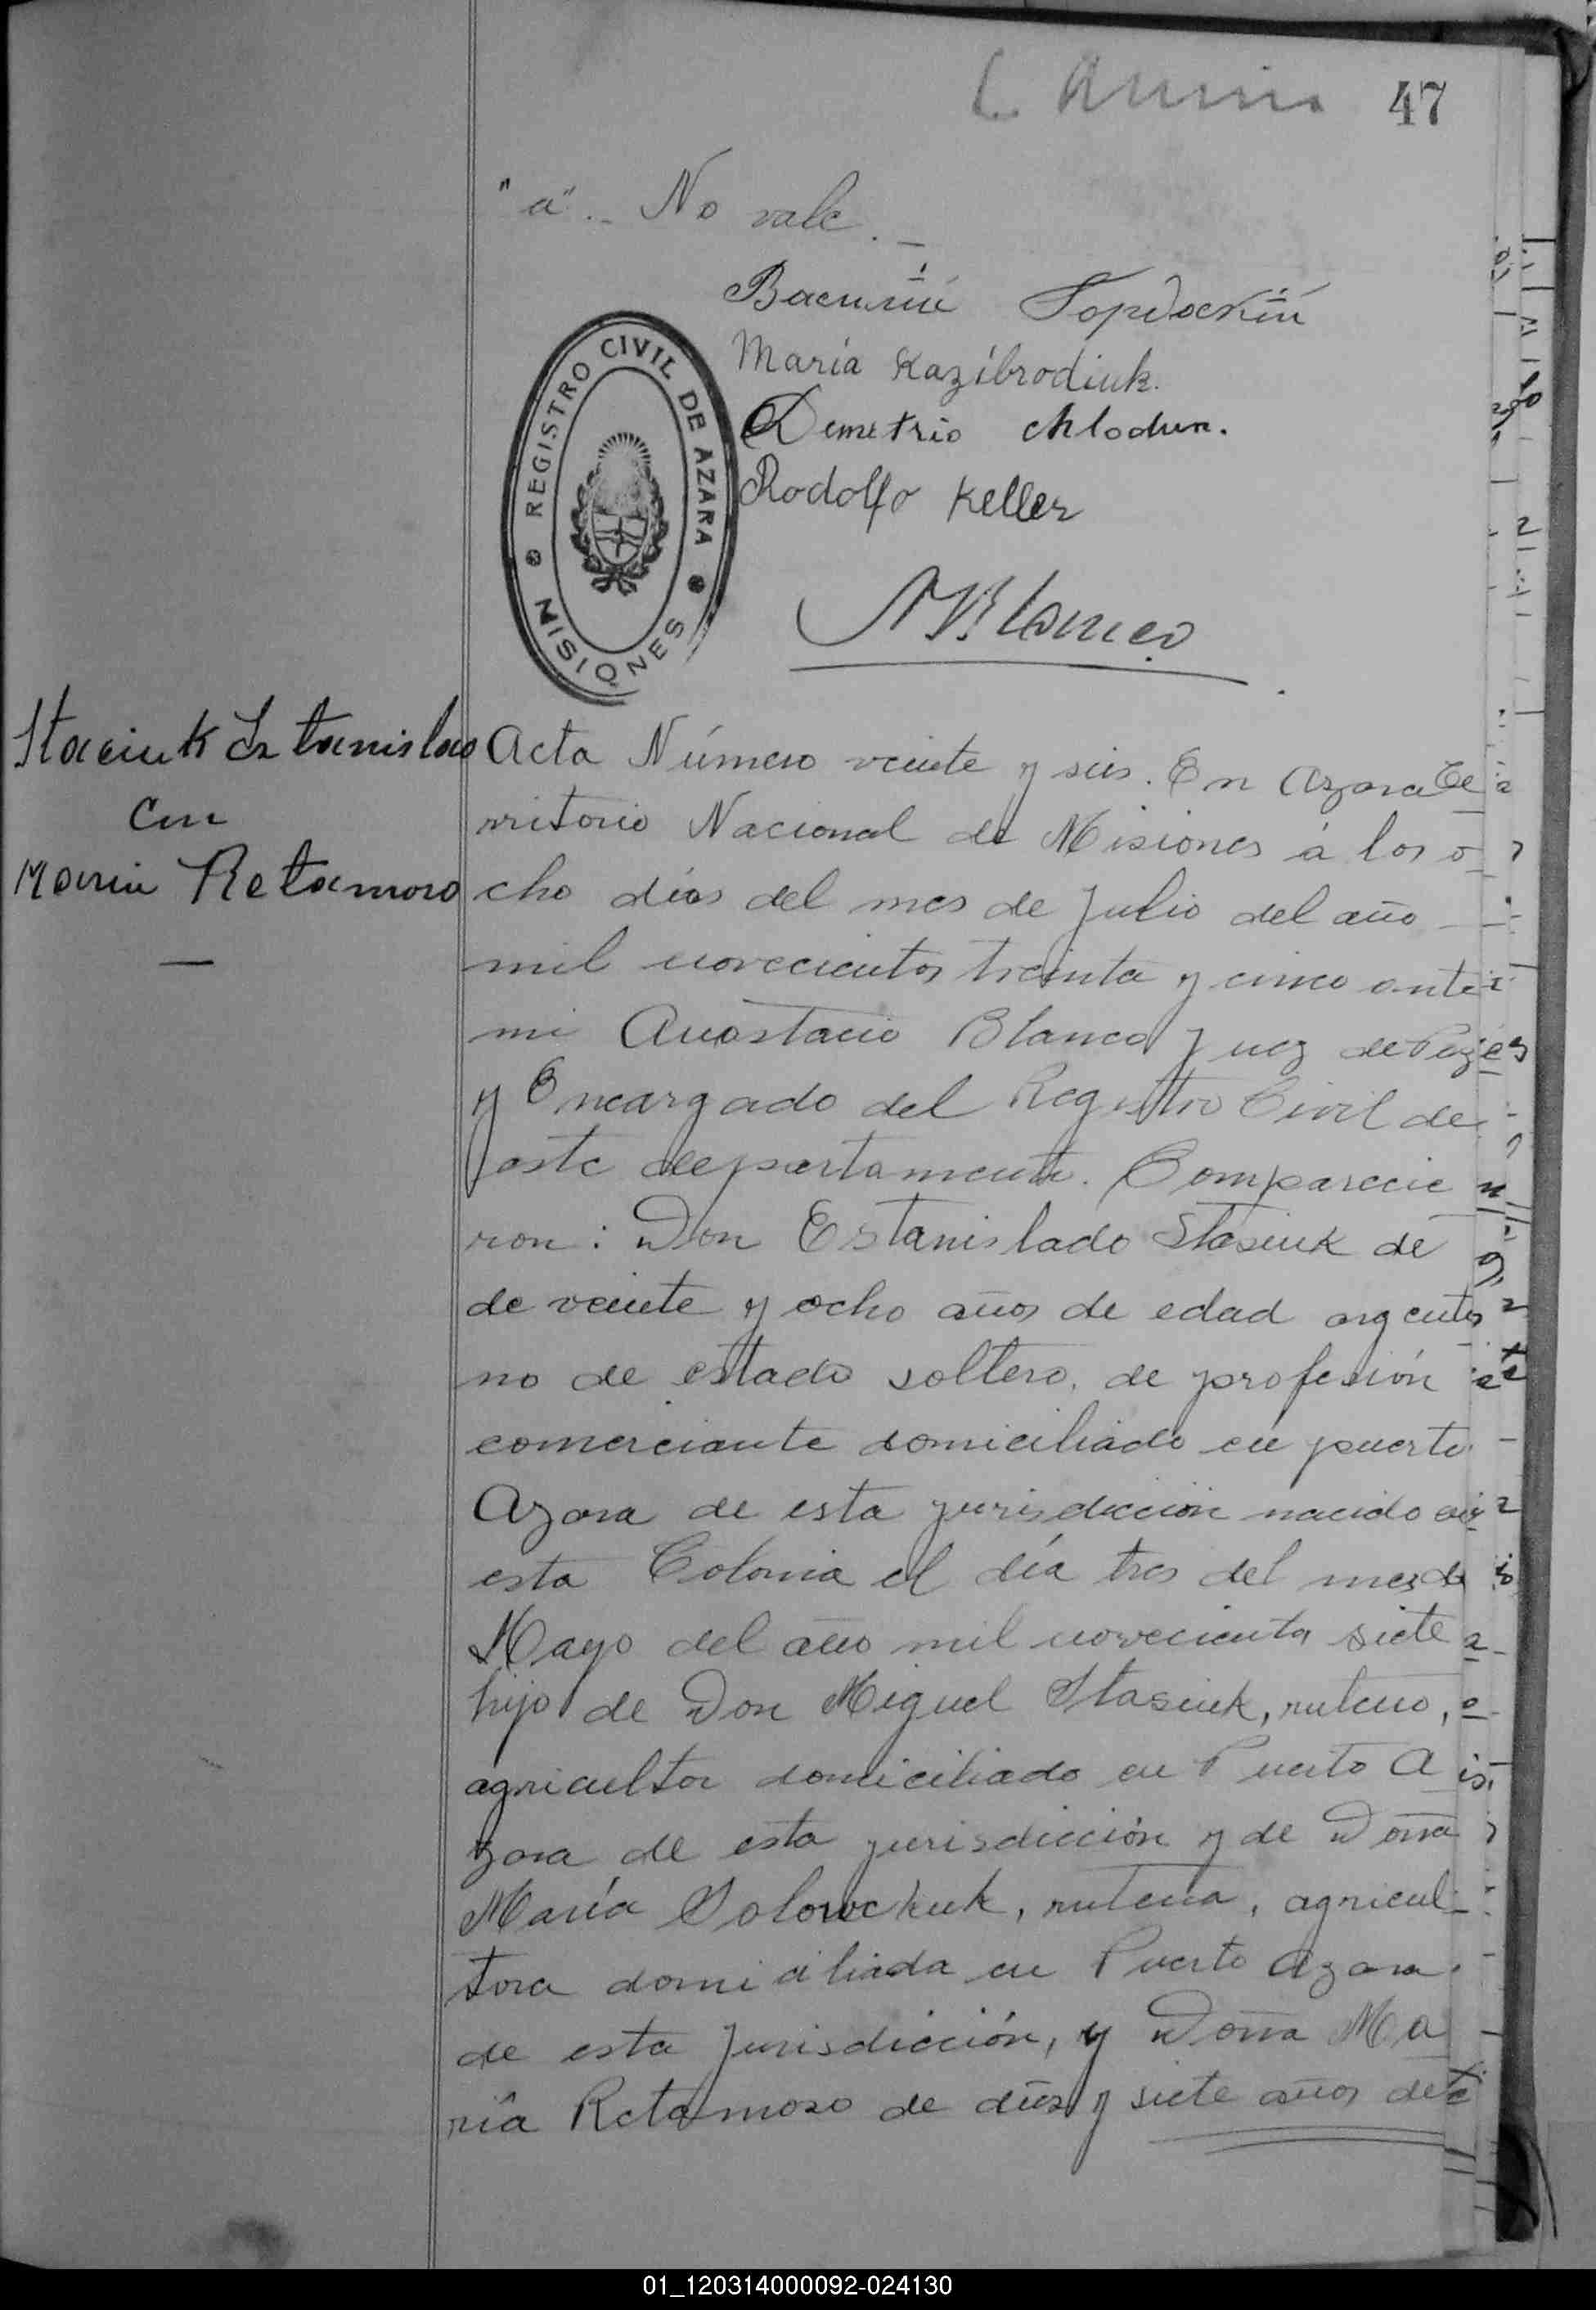 47
"a".- No vale.-
Василий Гордский
María Kazíbrodiuk.
Demetrio Chlodun.
Rodolfo Keller
REGISTRO CIVIL DE AZARA
MISIONES
ABlanco
Staciuk Estanislao
Con
Maria Retamoso
Acta Número veinte y seis. En Azara Te
rritorio Nacional de Misiones á los o
cho días del mes de Julio del año
mil novecientos treinta y cinco ante
mi Anastacio Blanco Juez de Paz
y Encargado del Registro Civil de
este departamento. Comparecie
ron: Don Estanislado Stasiuk de
de veinte y ocho años de edad argenti
no de estado soltero, de profesión
comerciante domiciliado en puerto
Azara de esta jurisdicción nacido en
esta Colonia el día tres del mes de
Mayo del año mil novecientos siete
hijo de Don Miguel Stasiuk, ruteno,
agricultor domiciliado en Puerto A
zara de esta jurisdicción y de Doña
María Solowchuk, rutena, agricul-
tora domiciliada en Puerto Azara
de esta Jurisdicción, y Doña Ma
ría Retamoso de diez y siete años de
01_120314000092-024130